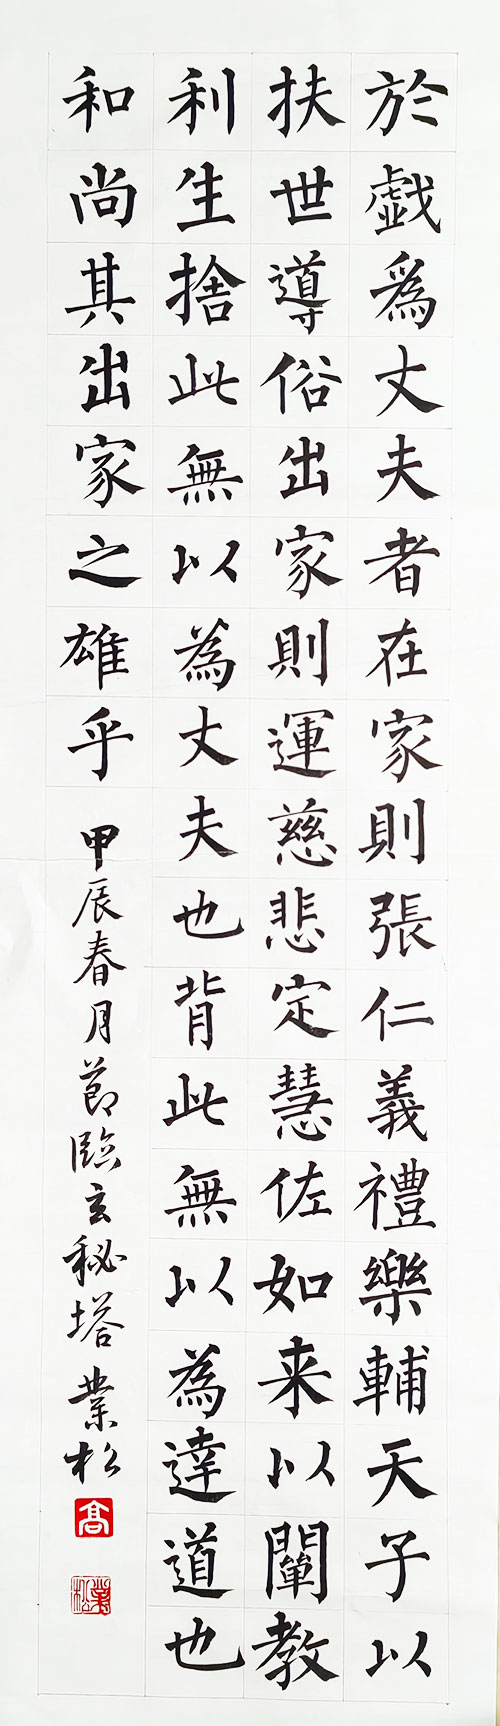 於戯為丈夫者在家則張仁義禮樂輔天子以
扶世導俗出家則運慈悲定慧佐如来以闡教
利生捨此無以為丈夫也背此無以為達道也
和尚其出家之雄乎
甲辰春月節臨玄秘塔業松
高
業松